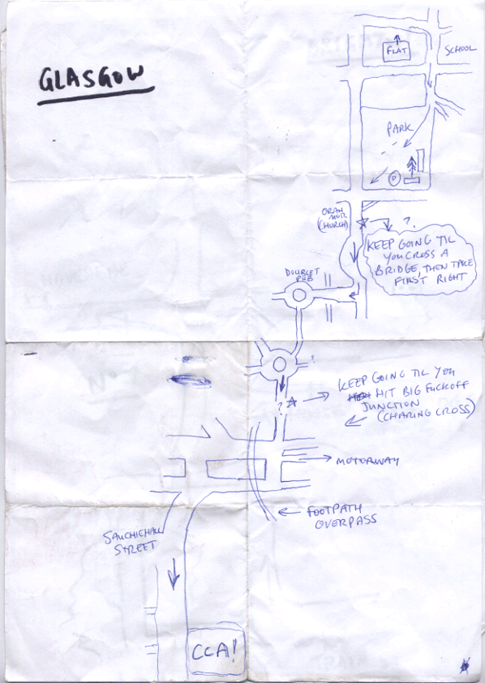 GLASGOW
FLAT
SCHOOL
PARK
P
ORAN
MOR
(CHURCH)
?
KEEP GOING TIL
YOU CROSS A
BRIDGE, THEN TAKE
FIRST RIGHT
DOUBLET
PUB
?
KEEP GOING TIL YEH
HIT BIG FUCKOFF
JUNCTION
(CHARING CROSS)
?
MOTORWAY
FOOTPATH
OVERPASS
SAUCHIEHALL
STREET
CCA!